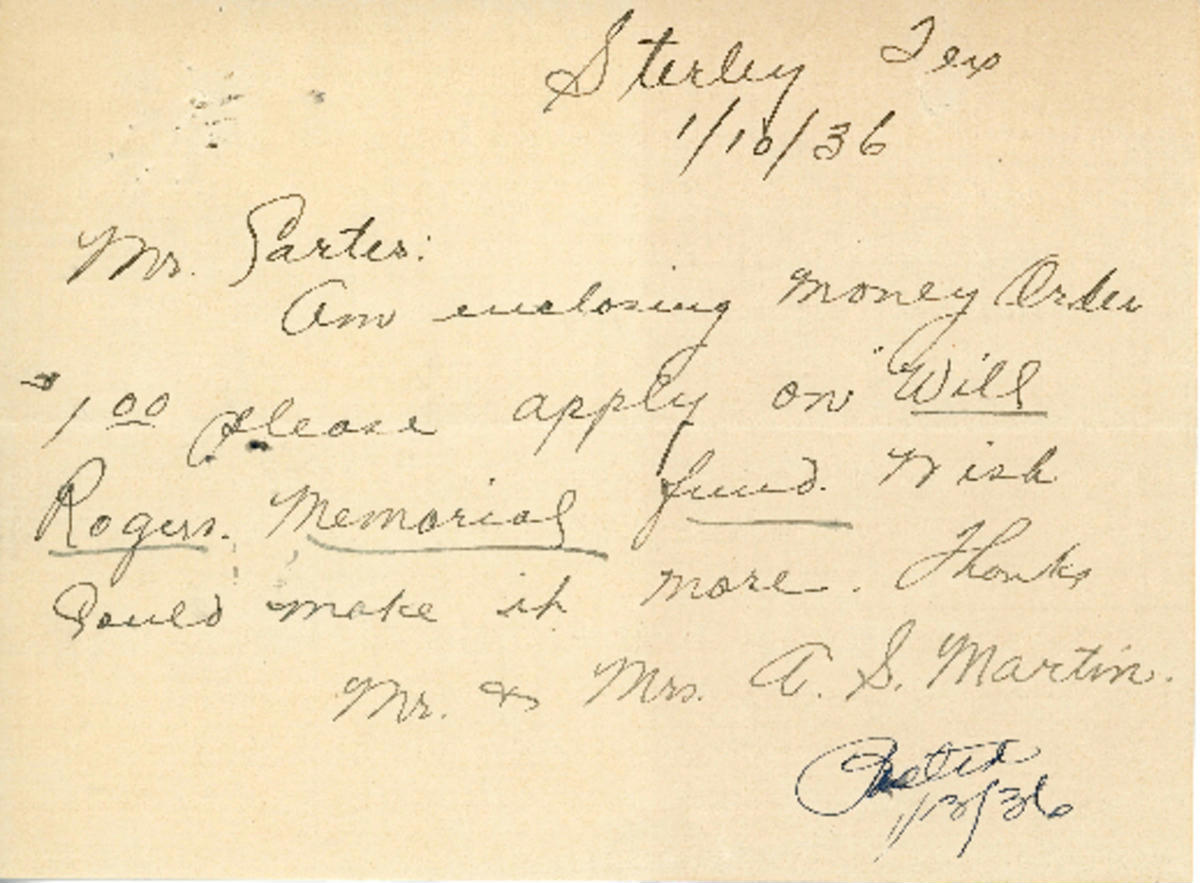 Sterley Tex
1/10/36
Mr. Carter:
Am enclosing Money Order
$1.00 please apply on Will
Rogers. Memorial fund. Wish
Could make it more. Thanks
Mr. & Mrs. A. S. Martin.
1/13/36